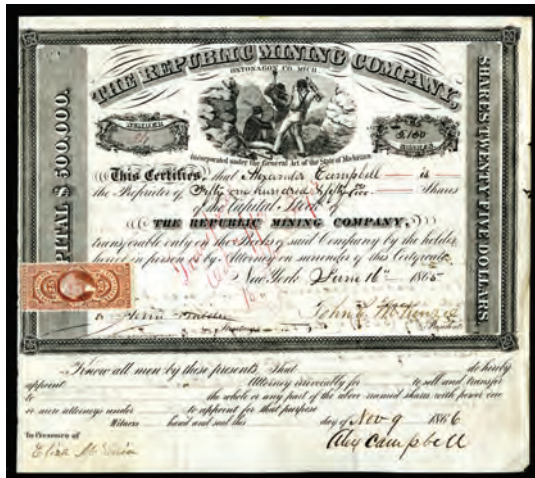 THE REPUBLIC MINING COMPANY,
ONTONAGON CO. MICH.
CAPITAL $ 500,000.
SHARES TWENTY FIVE DOLLARS.
NUMBER
SHARES
Incorporated under the General Act of the State of Michigan
This Certifies, that Alexander Campbell is
the Proprietor of Fifty one hundred & fifty five Shares
of the Capital Stock of
THE REPUBLIC MINING COMPANY,
transferable only on the Books of said Company by the holder
hereof in person or by Attorney on surrender of this Certificate
New York June 16th 1865
John McKenzie
President
Know all men by these presents, That do hereby
appoint Attorney irrevocably for to sell and transfer
to the whole or any part of the above named shares with power one
or more attorneys under to appoint for that purpose
Witness hand and seal this day of Nov 9 1866
In Presence of Alex Campbell